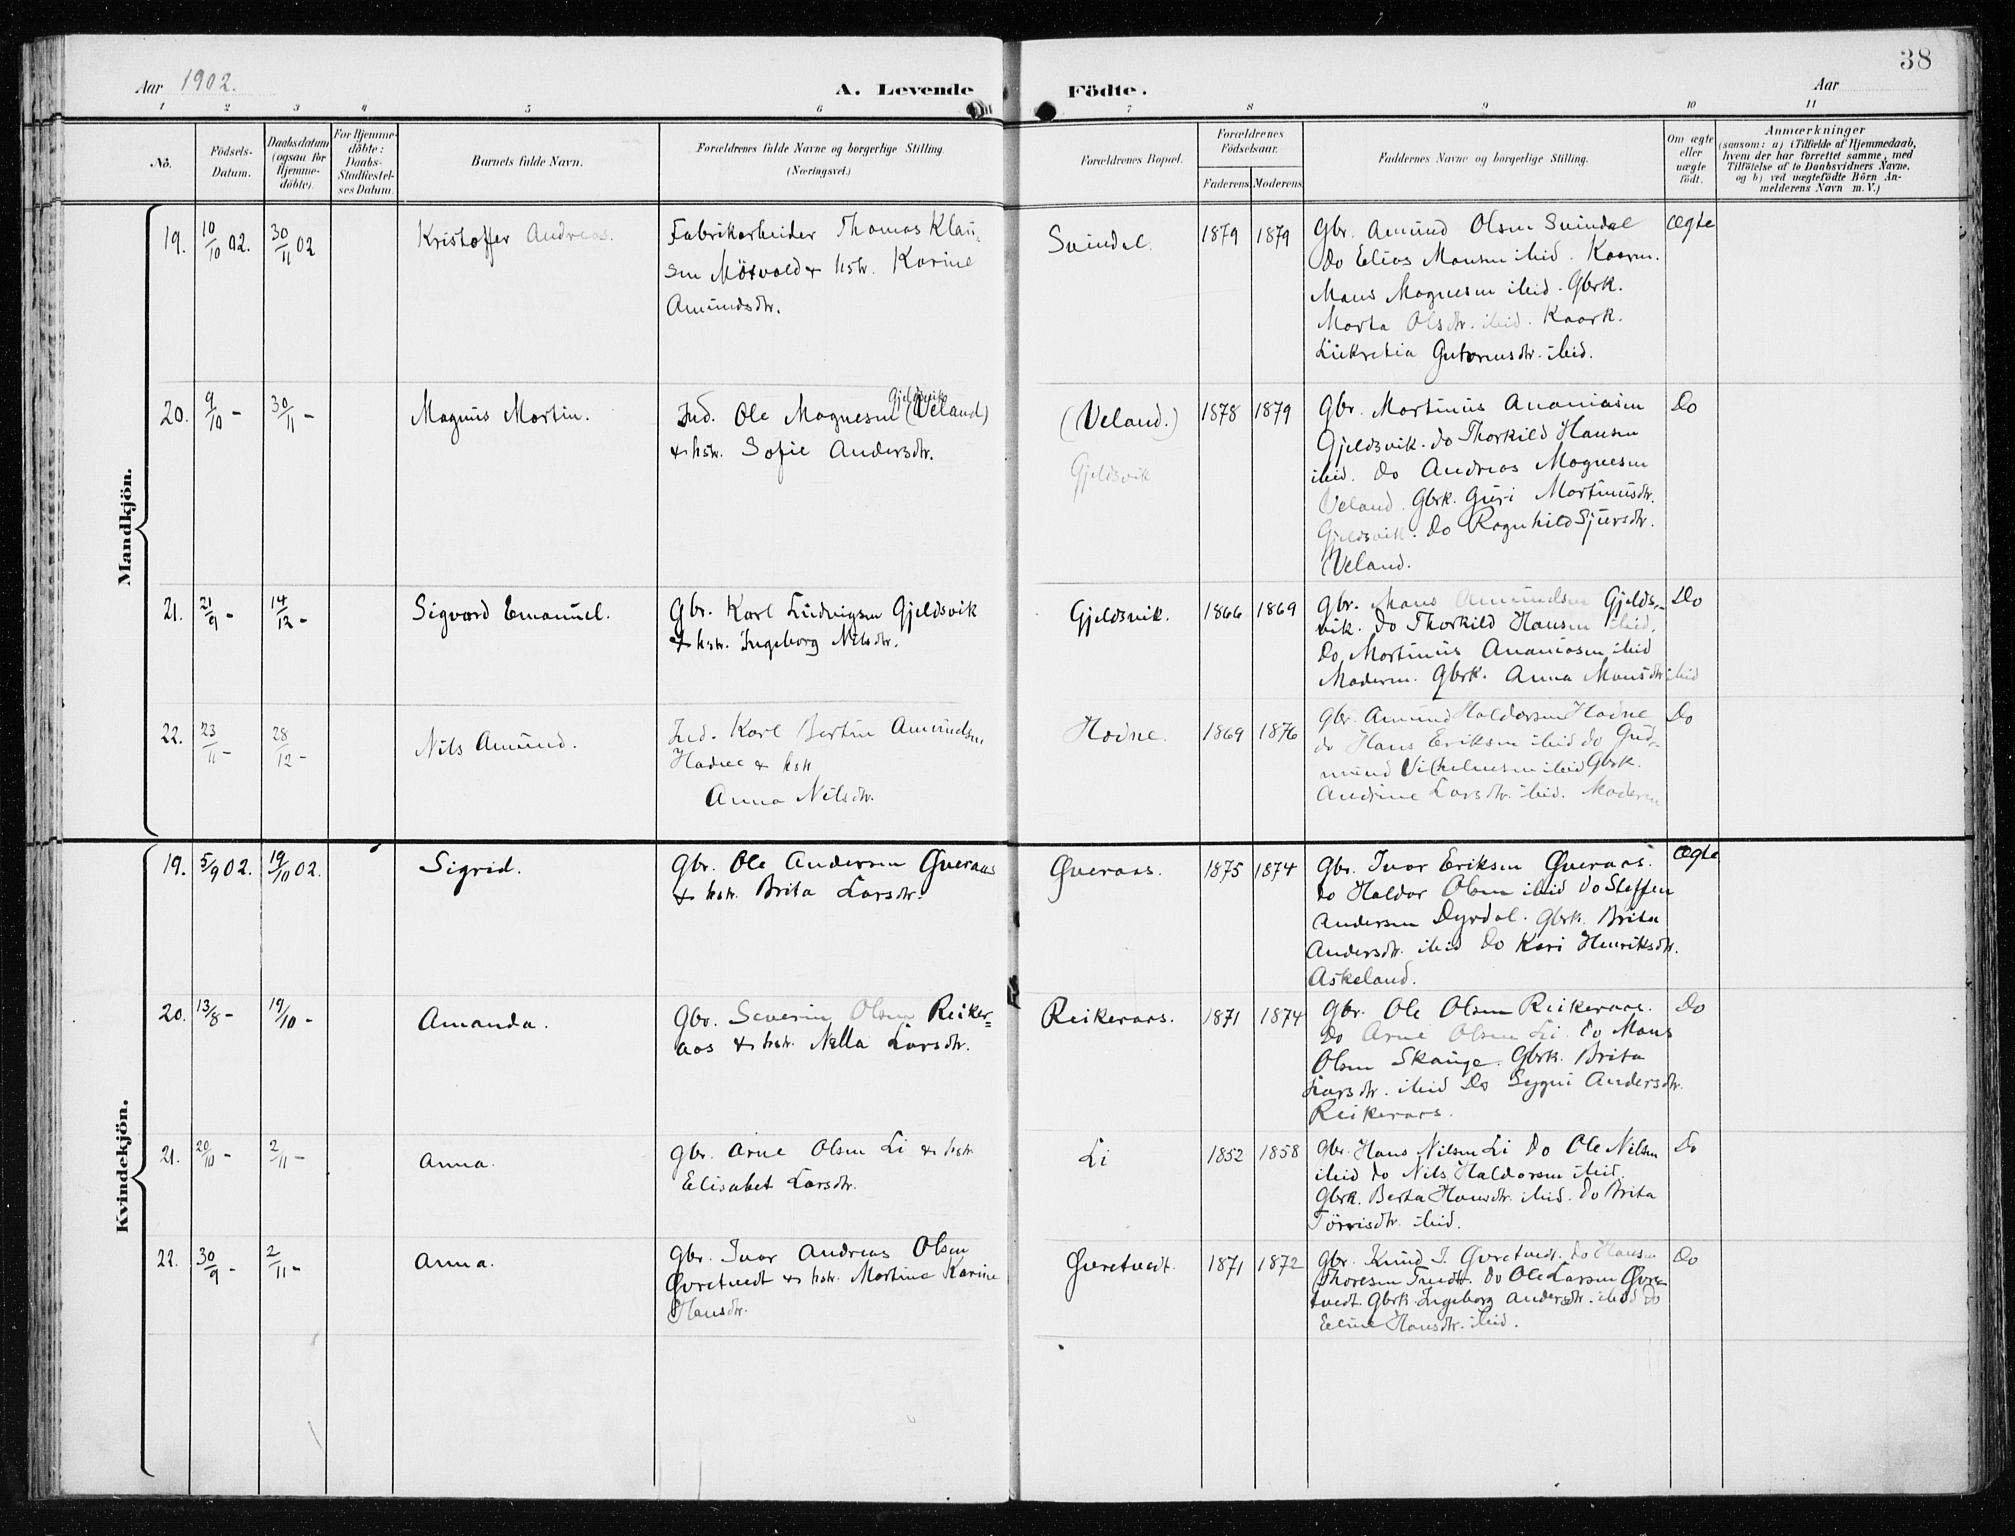 38
Aar 1902.
A. Levende Födte.
Aar
1 2 3 4 5 6 7 8 9 10 11
No.
Födsels-Datum.
Daabsdatum (ogsaa for Hjemmedöbte).
For Hjemmedöbte: Daabs-Stadfæstelses Datum.
Barnets fulde Navn.
Forældrenes fulde Navne og borgerlige Stilling.
(Næringsvei.)
Forældrenes Bopæl.
Forældrenes Födselsaar.
Faderens Moderens
Faddernes Navne og borgerlige Stilling.
Om ægte eller uægte födt.
Anmærkninger
(saasom: a) i Tilfælde af Hjemmedaab,
hvem der har forrettet samme, med
Tilföielse af to Daabsvidners Navne,
og b) ved uægtefödte Börn An-
melderens Navn m. V.)
Mandkjön.
19. 10/10 02. 30/11 02 Kristoffer Andreas.
Fabrikarbeider Thomas Klau-
sen Mösvold & hstr. Karine
Amundsdtr.
Svindal. 1879 1879
Gbr. Amund Olsen Svindal
Do Elias Monsen ibid. Kaarm.
Mons Magnesen ibid. Gbrk.
Marta Olsdtr. ibid. Kaark.
Lukretia Gutormsdtr. ibid.
Ægte
20. 9/10 - 30/11 - Magnus Martin.
Gjeldsvik
Ind. Ole Magnesen (Veland)
& hstr. Sofie Andersdtr.
(Veland.)
Gjeldsvik
1878 1879
Gbr. Martinus Ananiasen
Gjeldsvik. do Thorkild Hansen
ibid. do Andreas Magnesen
Veland. Gbrk. Guri Martinusdtr.
Gjeldsvik. Do Ragnhild Sjursdtr.
Veland.
Do
21. 21/9 - 14/12 - Sigvard Emanuel.
Gbr. Karl Ludvigsen Gjeldsvik
& hstr. Ingeborg Nilsdtr.
Gjeldsvik. 1866 1869
Gbr. Mons Amundsen Gjelds-
vik. do Thorkild Hansen ibid.
Do Martinus Ananiasen ibid
Moderen. Gbrk. Anna Monsdtr ibid
Do
22. 23/11 - 28/12 - Nils Amund.
Ind. Karl Bertin Amundsen
Hodne & hstr
Anna Nilsdtr.
Hodne. 1869 1876
Gbr. Amund Haldorsen Hodne
do Hans Eriksen ibid do Gud-
mund Vilhelmsen ibid Gbrk.
Andrine Larsdtr. ibid. Moderen
Do
Kvindekjön.
19. 5/9 02. 19/10 02. Sigrid.
Gbr. Ole Andersen Øveraas
& hstr. Brita Larsdtr.
Øveraas. 1875 1874
Gbr. Ivar Eriksen Øveraas.
do Haldor Olsen ibid do Steffen
Andersen Dyrdal. Gbrk. Brita
Andersdtr. ibid Do Kari Henriksdtr.
Askeland.
Ægte
20. 13/8 - 19/10 - Amanda.
Gbr. Severin Olsen Reiker-
aas & hstr. Nella Larsdtr.
Reikeraas. 1871 1874
Gbr. Ole Olsen Reikeraas.
Do Arne Olsen Li do Mons
Olsen Skauge. Gbrk. Brita
Larsdtr. ibid Do Sygni Andersdtr.
Reikeraas.
Do
21. 20/10 - 2/11 - Anna.
Gbr. Arne Olsen Li & hstr
Elisabet Larsdtr.
Li 1852 1858
Gbr. Hans Nilsen Li Do Ole Nilsen
ibid do Nils Haldorsen ibid.
Gbrk. Berta Hansdtr. ibid. do Brita
Tørrisdtr. ibid.
Do
22. 30/9 - 2/11 - Anna.
Gbr. Ivar Andreas Olsen
Øvretvedt & hstr. Martine Karine
Hansdtr.
Øvretvedt. 1871 1872
Gbr. Knud I. Øvretvedt. do Hansen
Thoresen Tvedt. do Ole Larsen Øvre-
tvedt. Gbrk. Ingeborg Andersdtr. ibid do
Eline Hansdtr. ibid.
Do